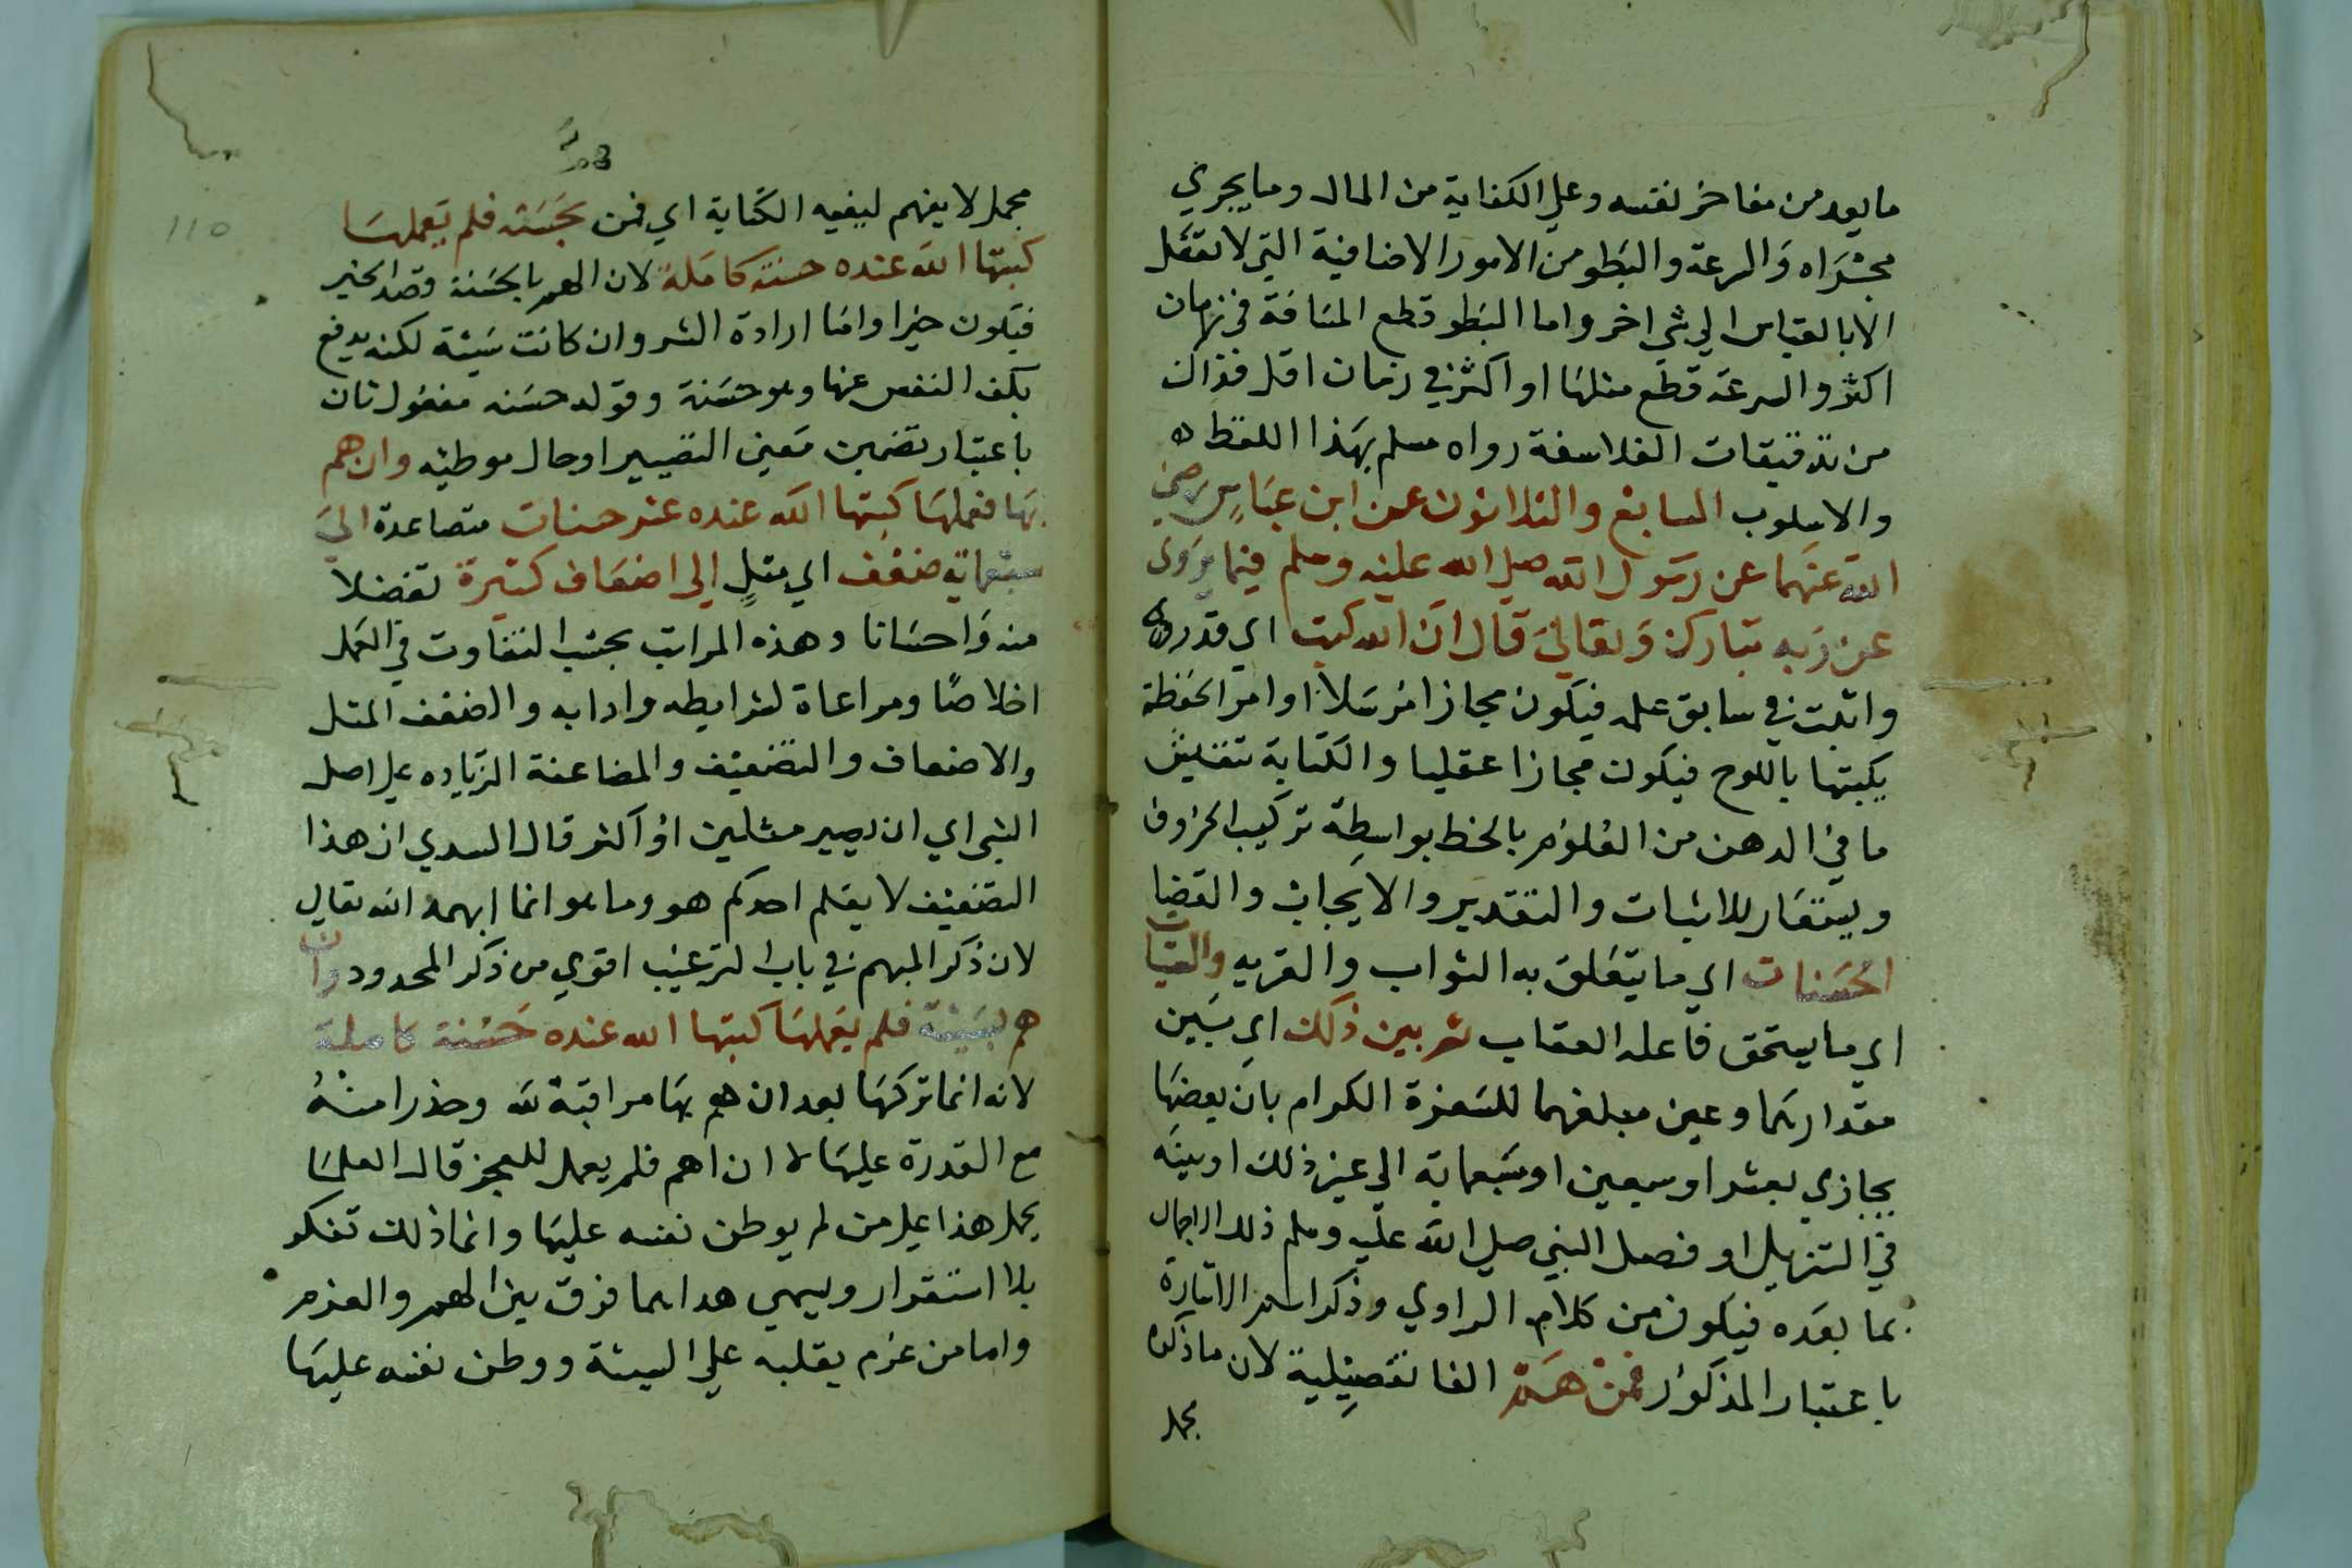 ما يعد من مفاخر نفسه وعلى الكفاية من المال وما يجري
مجراه والسرعة والبطو من الامور الاضافية التي لا تعقل
الا بالقياس الي شي اخر واما البطو قطع المسافة في زمان
اكثر والسرعة قطع مثلها او اكثر في زمان اقل فذاك
من تدقيقات الفلاسفة رواه مسلم بهذا اللفظ ه
والاسلوب السابع والثلاثون عن ابن عباس رضي
الله عنهما عن رسول الله صلي الله عليه وسلم فيما يروي
عن ربه تبارك وتعالي قال ان الله كتب اي قدر
واثبت في سابق علمه فيكون مجازا مرسلا او امر الحفظة
يكتبها باللوح فيكون مجازا عقليا والكتابة تنقيش
ما في الدهن من العلوم بالخط بواسطة تركيب الحروف
ويستعار للاثبات والتقدير والايجاب والقضا
الحسنات اي ما يتعلق به الثواب والقربه والسيات
اي ما يستحق فاعله العقاب ثم بين ذلك اي بين
مقدارهما وعين مبلغهما للسفرة الكرام بان بعضها
يجازي بعشر او سبعين او سبعماية الي غير ذلك او بينه
في التنزيل او فصل النبي صلي الله عليه وسلم ذلك الاجمال
بما بعده فيكون من كلام الراوي وذكر اسم الاشارة
باعتبار المذكور فمن هم الفا تفصيلية لان ما ذكره
مجمل
مجمل لا يفهم ليفيه الكتابة اي فمن بحسنه فلم يعملها
كتبها الله عنده حسنة كاملة لان الهم بالحسنة وقصد الخير
فيكون خيرا واما ارادة الشر وان كانت سيئة لكنه يدفع
بكف النفس عنها وهو حسنة وقوله حسنه مفعول ثان
باعتبار تضمين معني التصيير او حال موطئه وان هم
بها فعملها كتبها الله عنده عشر حسنات متصاعدة الي
سبعماية ضعف اي مثل الي اضعاف كثيرة تفضلا
منه واحسانا وهذه المراتب بحسب التفاوت في العمل
اخلاصا ومراعاة لشرايطه وادابه والضعف المثل
والاضعاف والتضعيف والمضاعفة الزياده علي اصل
الشي اي ان يصير مثلين او اكثر قال السدي ان هذا
التضعيف لا يعلم احدكم هو وما هو انما ابهمه الله تعالي
لان ذكر المبهم في باب الترغيب اقوي من ذكر المحدود وان
هم بسيئة فلم يعملها كتبها الله عنده حسنة كاملة
لانه انما تركها بعد ان هم بها مراقبة لله وحذرا منه
مع القدرة عليها لا ان اهم فلم يعمل للعجز قال العلما
يحمل هذا علي من لم يوطن نفسه عليها وانما ذلك تفكر
بلا استقرار ويسمي هدا هما فرق بين الهم والعزم
واما من عزم بقلبه علي السيئة ووطن نفسه عليها